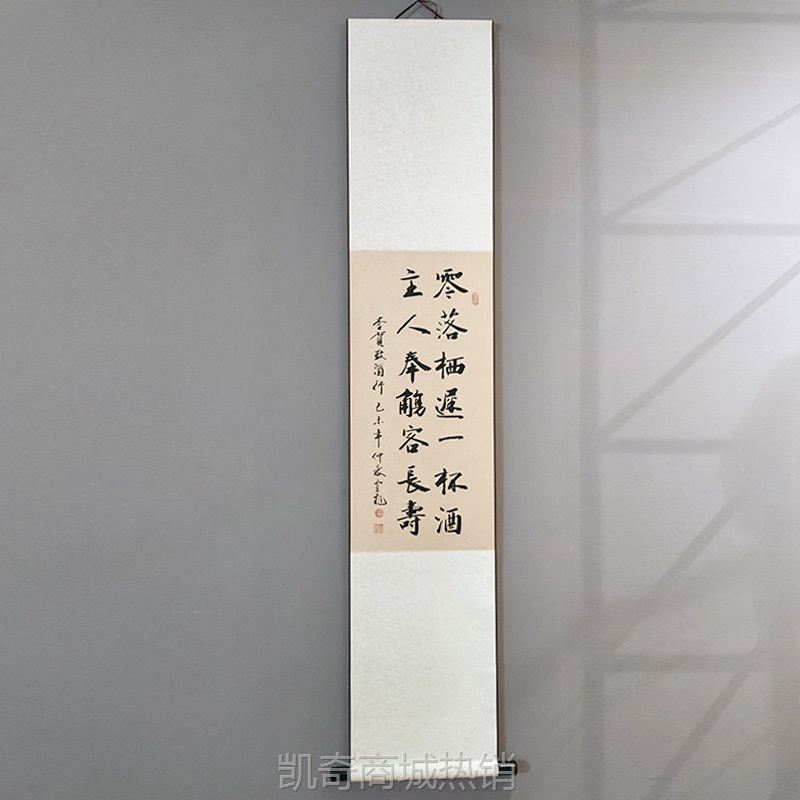 零落栖遲一杯酒
主人奉觴客長壽
李賀致酒行 己未年仲
凯奇商城热销